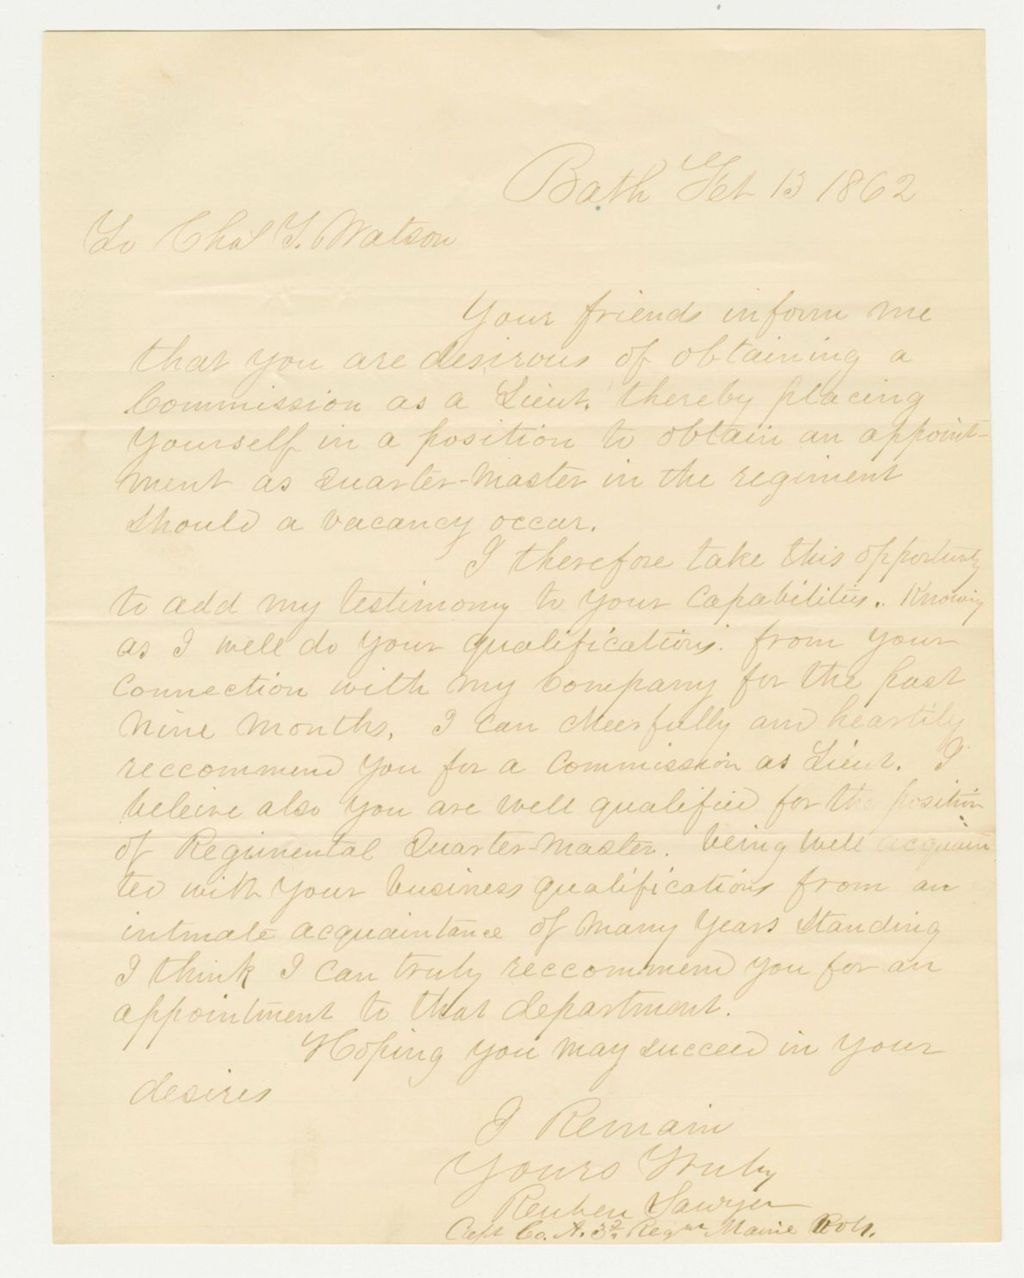 Bath Feb 13 1862
To Chas T. Watson
Your friends inform me
that you are desirous of obtaining a
Commission as a Lieut. thereby placing
yourself in a position to obtain an appoint-
ment as Quarter-Master in the regiment
should a vacancy occur.
I therefore take this opportunity
to add my testimony to your capabilities. Knowing
as I well do your qualifications from your
connection with my company for the past
nine months, I can cheerfully and heartily
reccommend you for a commission as Lieut. I
beleive also you are well qualified for the position
of Regimental Quarter-Master. being well acquain
ted with your business qualifications from an
intimate acquaintance of many years standing
I think I can truly reccommend you for an
appointment to that department.
Hoping you may succeed in your
desires
I Remain
Yours Truly
Reuben Sawyer
Capt Co. A. 3d Regmt Maine Vols.